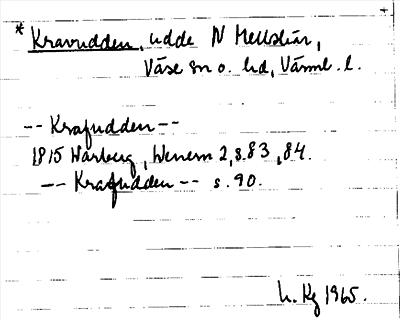 * Kravudden, udde N Mellskär,
Väse sn o. hd, Värml. l.
-- Krafudden --
1815 Warberg, Wenern 2, s. 83, 84.
-- Krafudden -- s. 90.
L. Kg 1965.